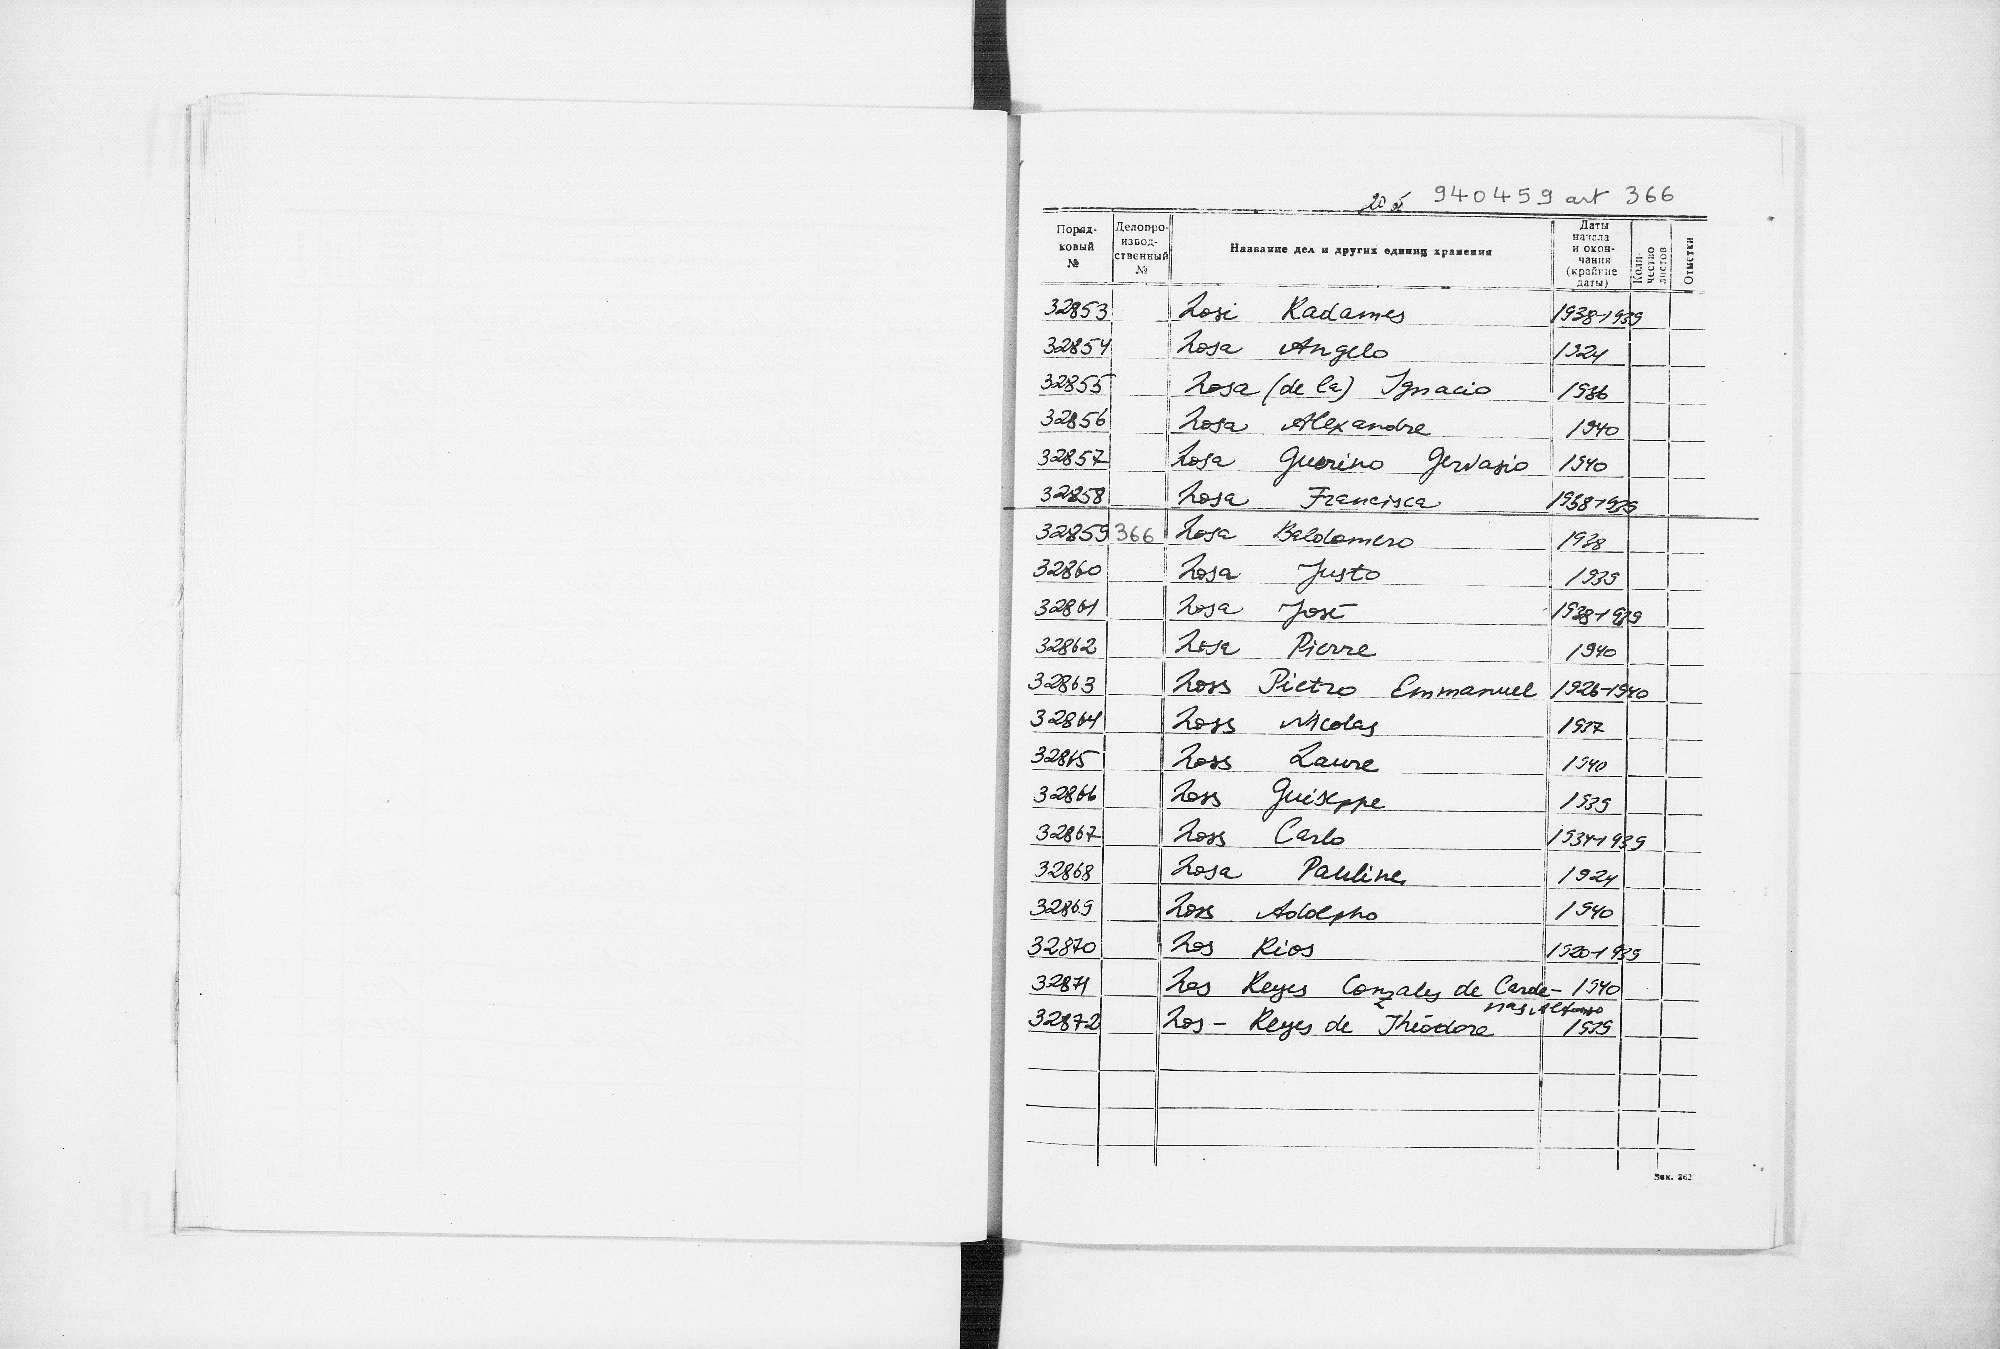 940459 art 366
Поряд-
ковый
№
Делопро-
извод-
ственный
№
Название дел и других единиц хранения
Даты
начала
и окон-
чания
(крайние
даты)
Коли-
чество
листов
Отметки
32853 Losi Radames 1938-1939
32854 Losa Angelo 1924
32855 Losa (de la) Ignacio 1936
32856 Losa Alexandre 1940
32857 Losa Guerino Gervasio 1940
32858 Losa Francisca 1938-1939
32859 366 Losa Baldomero 1938
32860 Losa Justo 1939
32861 Losa José 1938-1939
32862 Losa Pierre 1940
32863 Loss Pietro Emmanuel 1926-1940
32864 Loss Nicolas 1937
32865 Loss Laure 1940
32866 Loss Guiseppe 1939
32867 Loss Carlo 1934-1939
32868 Losa Pauline 1924
32869 Loss Adolpho 1940
32870 Los Rios 1920-1939
32871 Los Reyes Gonzales de Carde- 1940
nas Alfonso
32872 Los - Reyes de Théodore 1939
Зак. 362